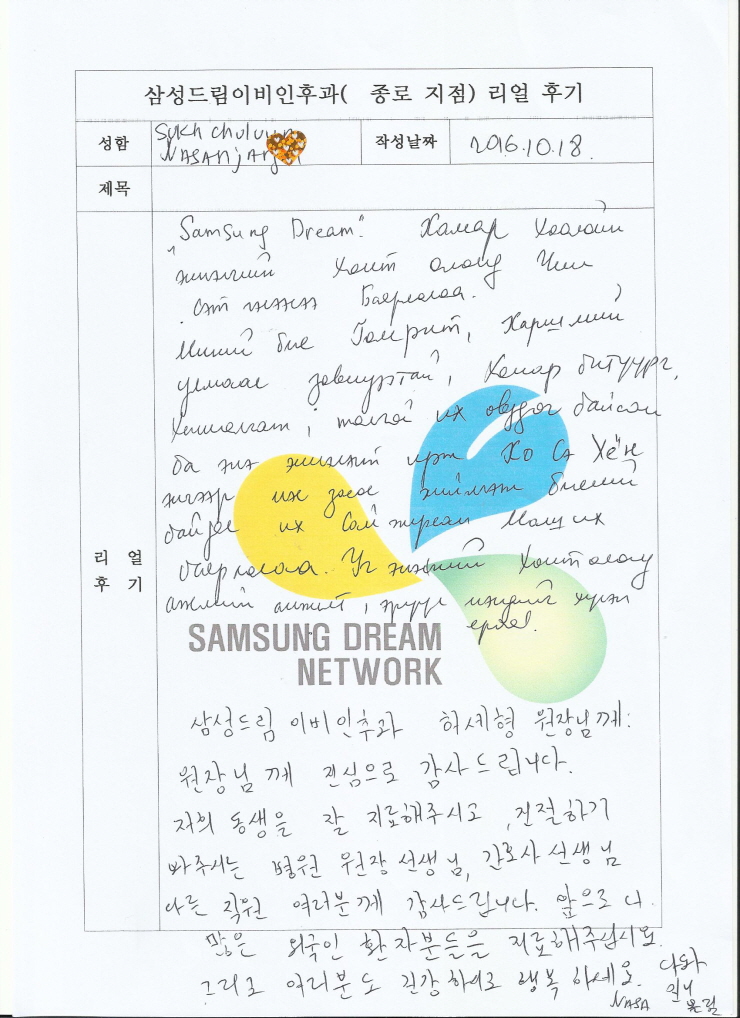 삼성드림이비인후과( 종로 지점) 리얼 후기
성함 Sukh chuluun 작성날짜 2016.10.18.
제목
"Samsung Dream" Хамар Хоолойн
эмнэлгийн хамт олонд Чин
сэтгэлээсээ Баярлалаа.
Миний бие Гайморит, Харшлын
улмаас зовиуртай, Хамар битүүрч,
толгой их өвддөг байсан
ба энэ эмнэлэгт ирж Хо Сэ Хён
эмчээр мэс засал хийлгэж биеийн
байдал их сайжирсан Маш их
баярлалаа. Уг эмнэлгийн Хамт олонд
ажлын амжилт, эрүүл энхийг хүсэн
ерөөе.
리 얼
후 기
SAMSUNG DREAM
NETWORK
삼성드림 이비인후과 허세형 원장님께:
원장님께 진심으로 감사드립니다.
저의 동생을 잘 치료해주시고, 친절하기
봐주시는 병원 원장선생님, 간호사 선생님
다른 직원 여러분께 감사드립니다. 앞으로 더
많은 외국인 환자분들을 치료해주십시요.
그리고 여러분도 건강하시고 행복 하세요.
NASA